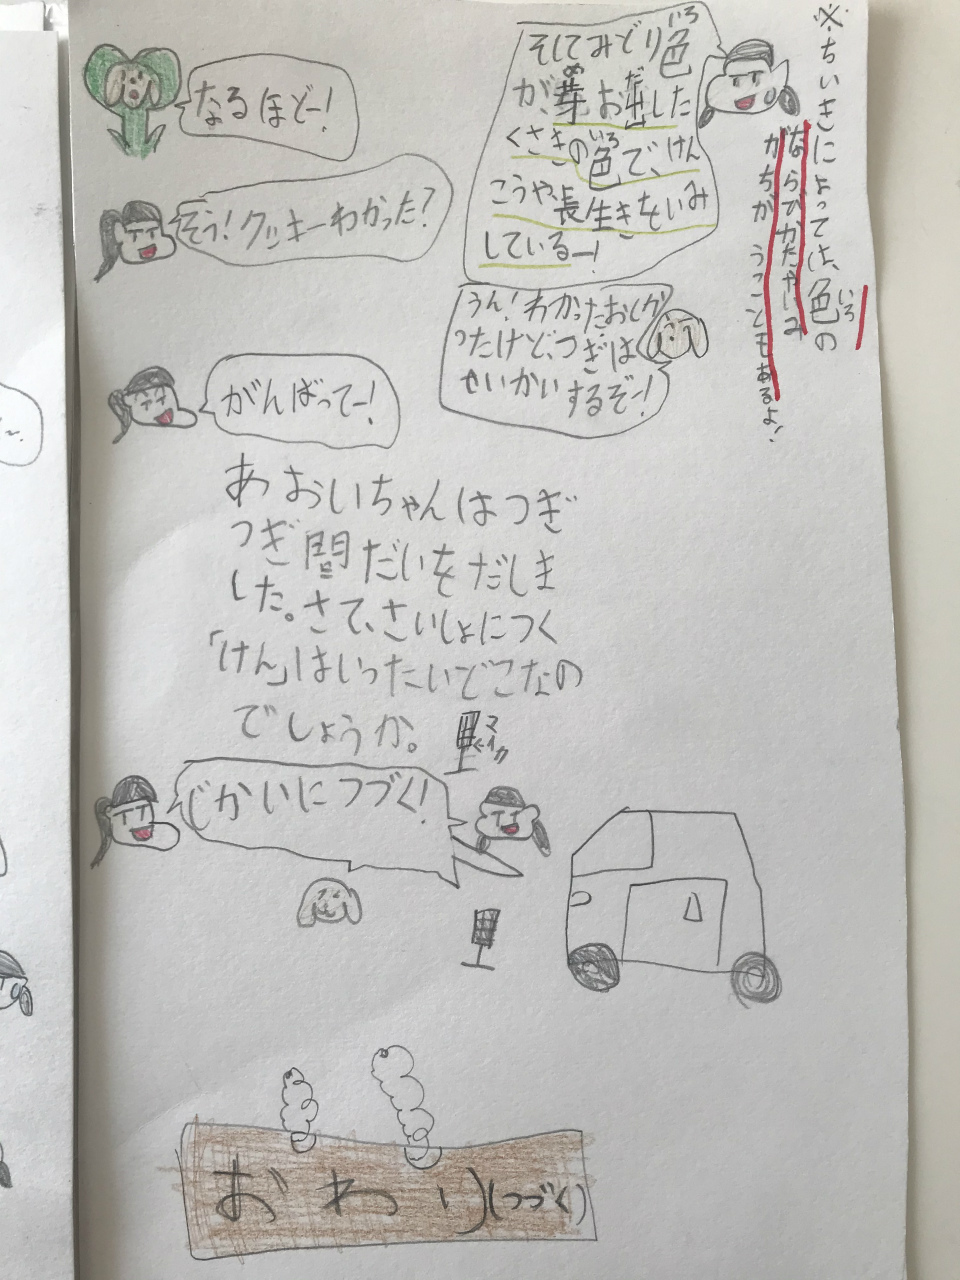 ※ちいきによっては、色のならびかたやいみがちがうこともあるよ!
いろ
そしてみどり色
いろ
が、芽お出した
め
だ
くさきの色で、けん
いろ
こうや、長生きをいみ
しているー!
なるほどー!
そう!クッキーわかった?
うん!わかったおしかったけど、つぎは
せいかいするぞー!
がんばってー!
あおいちゃんはつぎ
つぎ問だいをだしま
した。さて、さいしょにつく
「けん」はいったいどこなの
でしょうか。
マイク
じかいにつづく!
おわり(つづく)